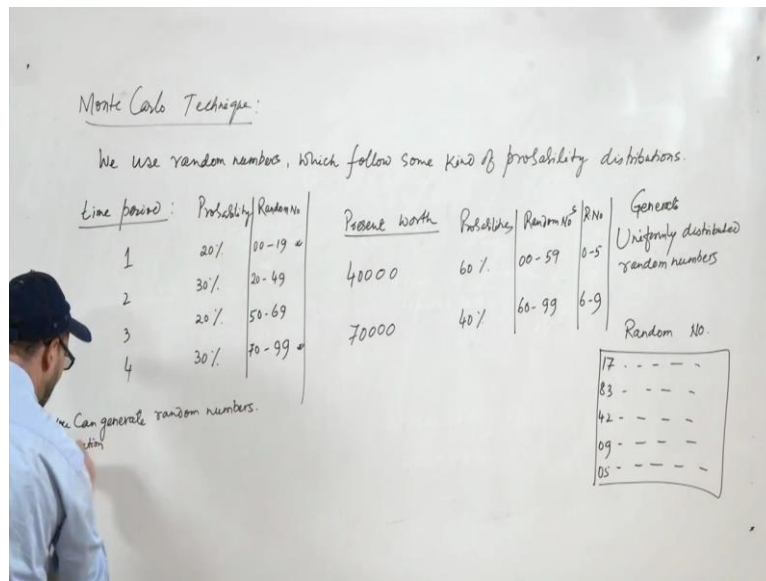 Monte Carlo Technique:
We use random numbers, which follow some kind of probability distributions.
time period: Probability Random No
1 20% 00-19
2 30% 20-49
3 20% 50-69
4 30% 70-99
Present Worth Probabilities Random No^s R.No
40000 60% 00-59 0-5
70000 40% 60-99 6-9
Generate
Uniformly distributed
random numbers
Random No.
17 - - - - -
83 - - - -
42 - - - - -
09 - - - - -
05 - - - - -
Can generate random numbers.